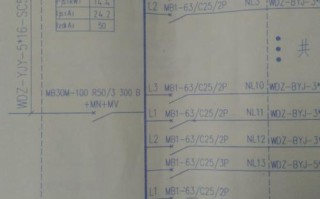 14.4
24.2
50
WDZ-YJY-5*16-SC5
L2 MB1-63/C25/2P NL9 WDZ-BYJ-3*
共
MB30M-100 R50/3 300 B
+MN+MV
L3 MB1-63/C25/2P NL10 WDZ-BYJ-3*
L1 MB1-63/C25/2P NL11 WDZ-BYJ-3*
L2 MB1-63/C25/2P NL12 WDZ-BYJ-3*
MB1-63/C25/3P NL13 WDZ-BYJ-5*
L1 MB1-63/C25/2P